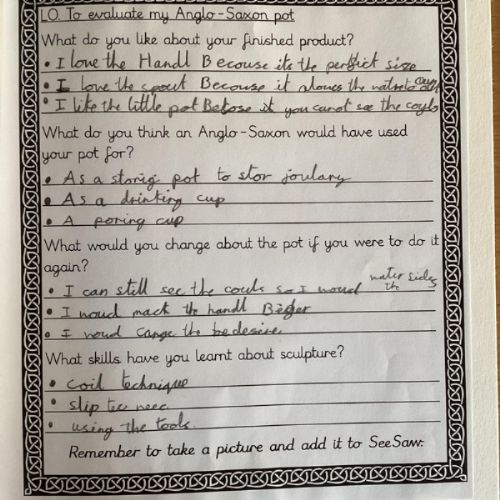 LO. To evaluate my Anglo-Saxon pot
What do you like about your finished product?
• I love the Handl Becouse its the perfict size
• I love the spout Becouse it alowes the out
• I like the little pot Befose it you canot see the coyls
What do you think an Anglo-Saxon would have used
your pot for?
• As a storig pot to stor joulary
• As a drinking cup
• A poring cup
What would you change about the pot if you were to do it
again?
• I can still see the couls so I woud th sides
• I woud mack the handl Beger
• I woud cange the
What skills have you learnt about sculpture?
• coil technique
• slip tec neec
• using the tools.
Remember to take a picture and add it to SeeSaw.